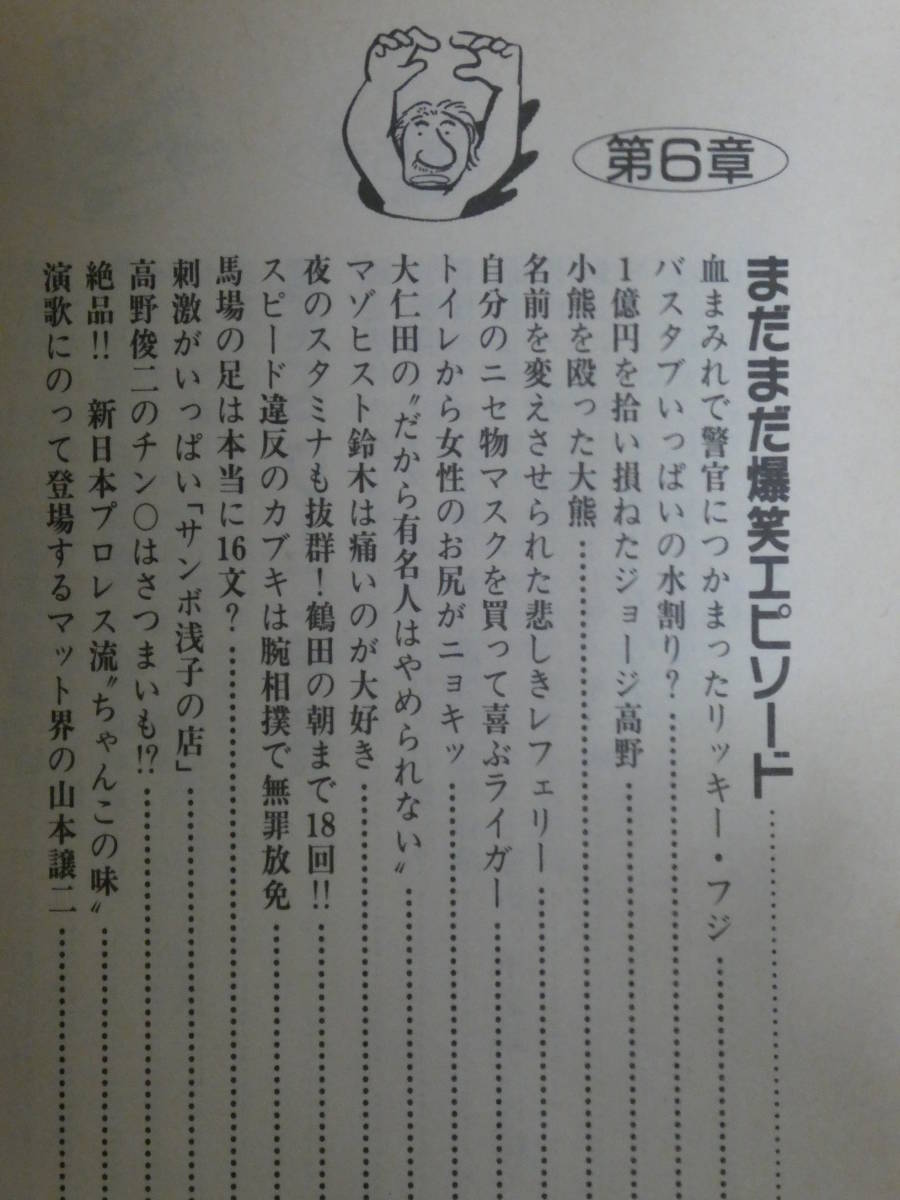 第6章
まだまだ爆笑エピソード
血まみれで警官につかまったリッキー・フジ
バスタブいっぱいの水割り?
1億円を拾い損ねたジョージ高野
小熊を殴った大熊
名前を変えさせられた悲しきレフェリー
自分のニセ物マスクを買って喜ぶライガー
トイレから女性のお尻がニョキッ
大仁田の〝だから有名人はやめられない〟
マゾヒスト鈴木は痛いのが大好き
夜のスタミナも抜群!鶴田の朝まで18回!!
スピード違反のカブキは腕相撲で無罪放免
馬場の足は本当に16文?
刺激がいっぱい「サンボ浅子の店」
高野俊二のチン○はさつまいも!?
絶品!! 新日本プロレス流〝ちゃんこの味〟
演歌にのって登場するマット界の山本譲二